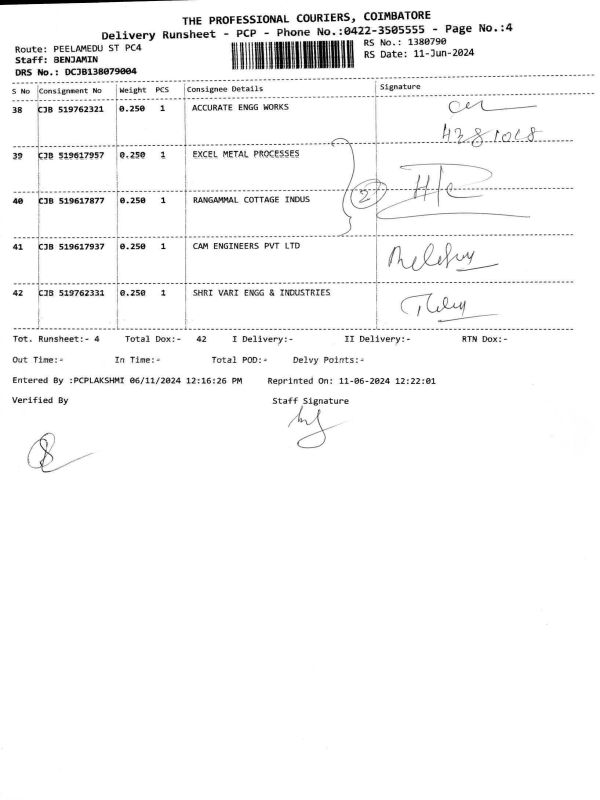 THE PROFESSIONAL COURIERS, COIMBATORE
Delivery Runsheet - PCP - Phone No.:0422-3505555 - Page No.:4
Route: PEELAMEDU ST PC4 RS No.: 1380790
Staff: BENJAMIN RS Date: 11-Jun-2024
DRS No.: DCJB138079004
S No Consignment No Weight PCS Consignee Details Signature
38 CJB 519762321 0.250 1 ACCURATE ENGG WORKS
39 CJB 519617957 0.250 1 EXCEL METAL PROCESSES
40 CJB 519617877 0.250 1 RANGAMMAL COTTAGE INDUS
2
41 CJB 519617937 0.250 1 CAM ENGINEERS PVT LTD
42 CJB 519762331 0.250 1 SHRI VARI ENGG & INDUSTRIES
Tot. Runsheet:- 4 Total Dox:- 42 I Delivery:- II Delivery:- RTN Dox:-
Out Time:- In Time:- Total POD:- Delvy Points:-
Entered By :PCPLAKSHMI 06/11/2024 12:16:26 PM Reprinted On: 11-06-2024 12:22:01
Verified By Staff Signature